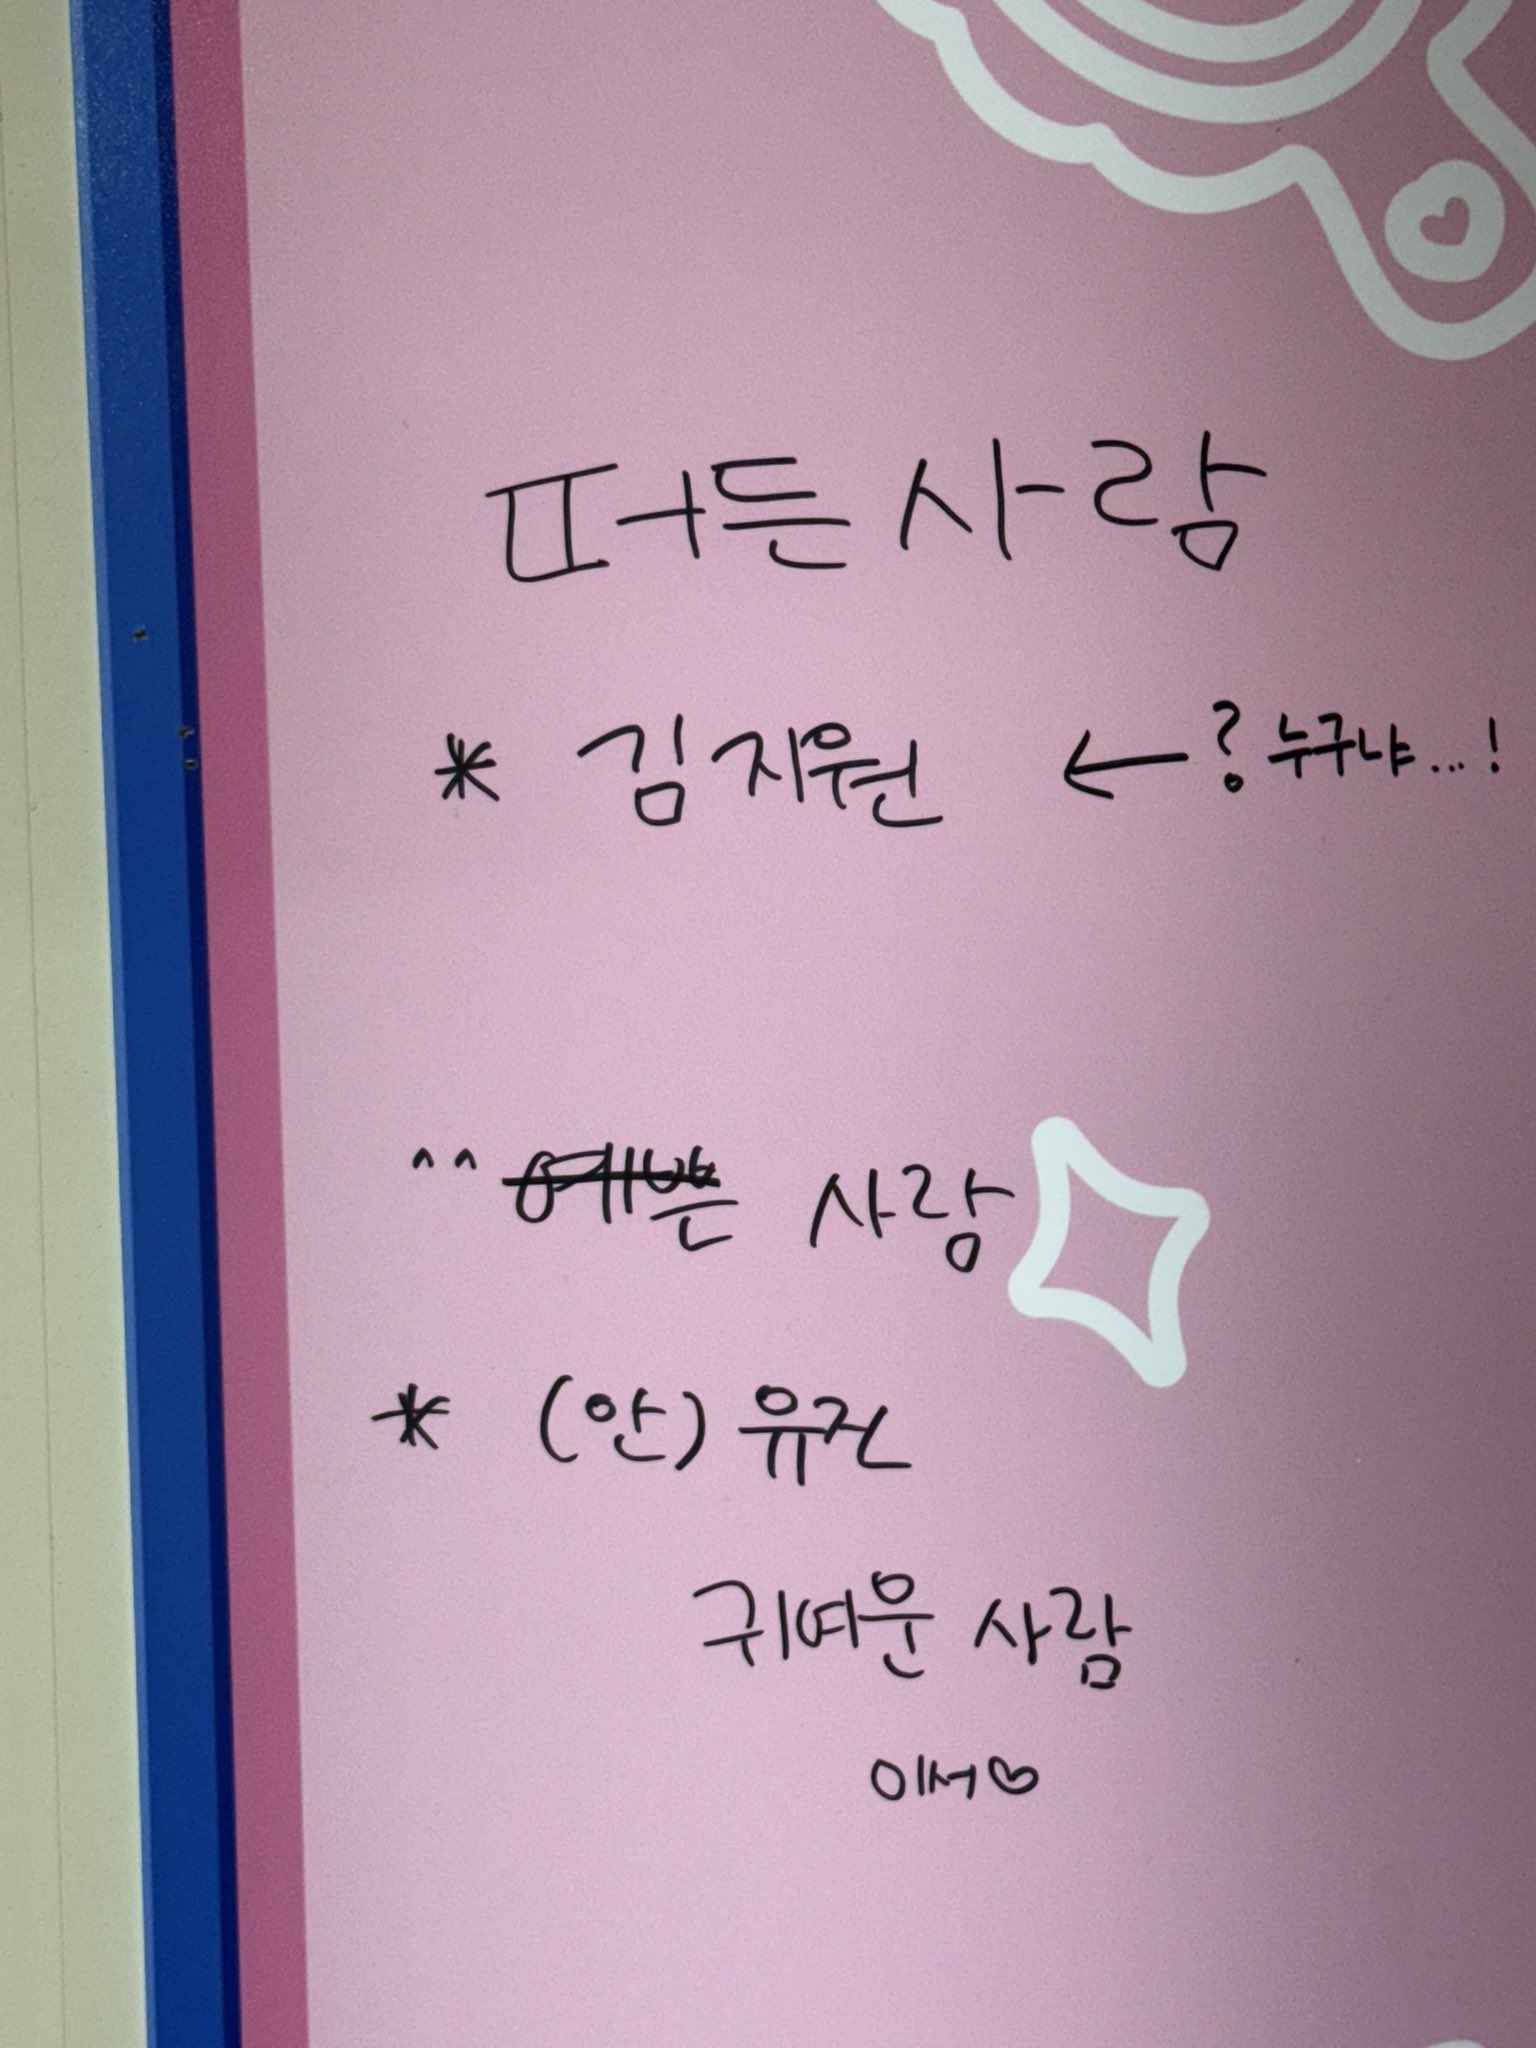 떠든 사람
* 김지원 ← ? 누구냐...!
^^ 예쁜 사랑
* (안) 유진
귀여운 사람
이서♡